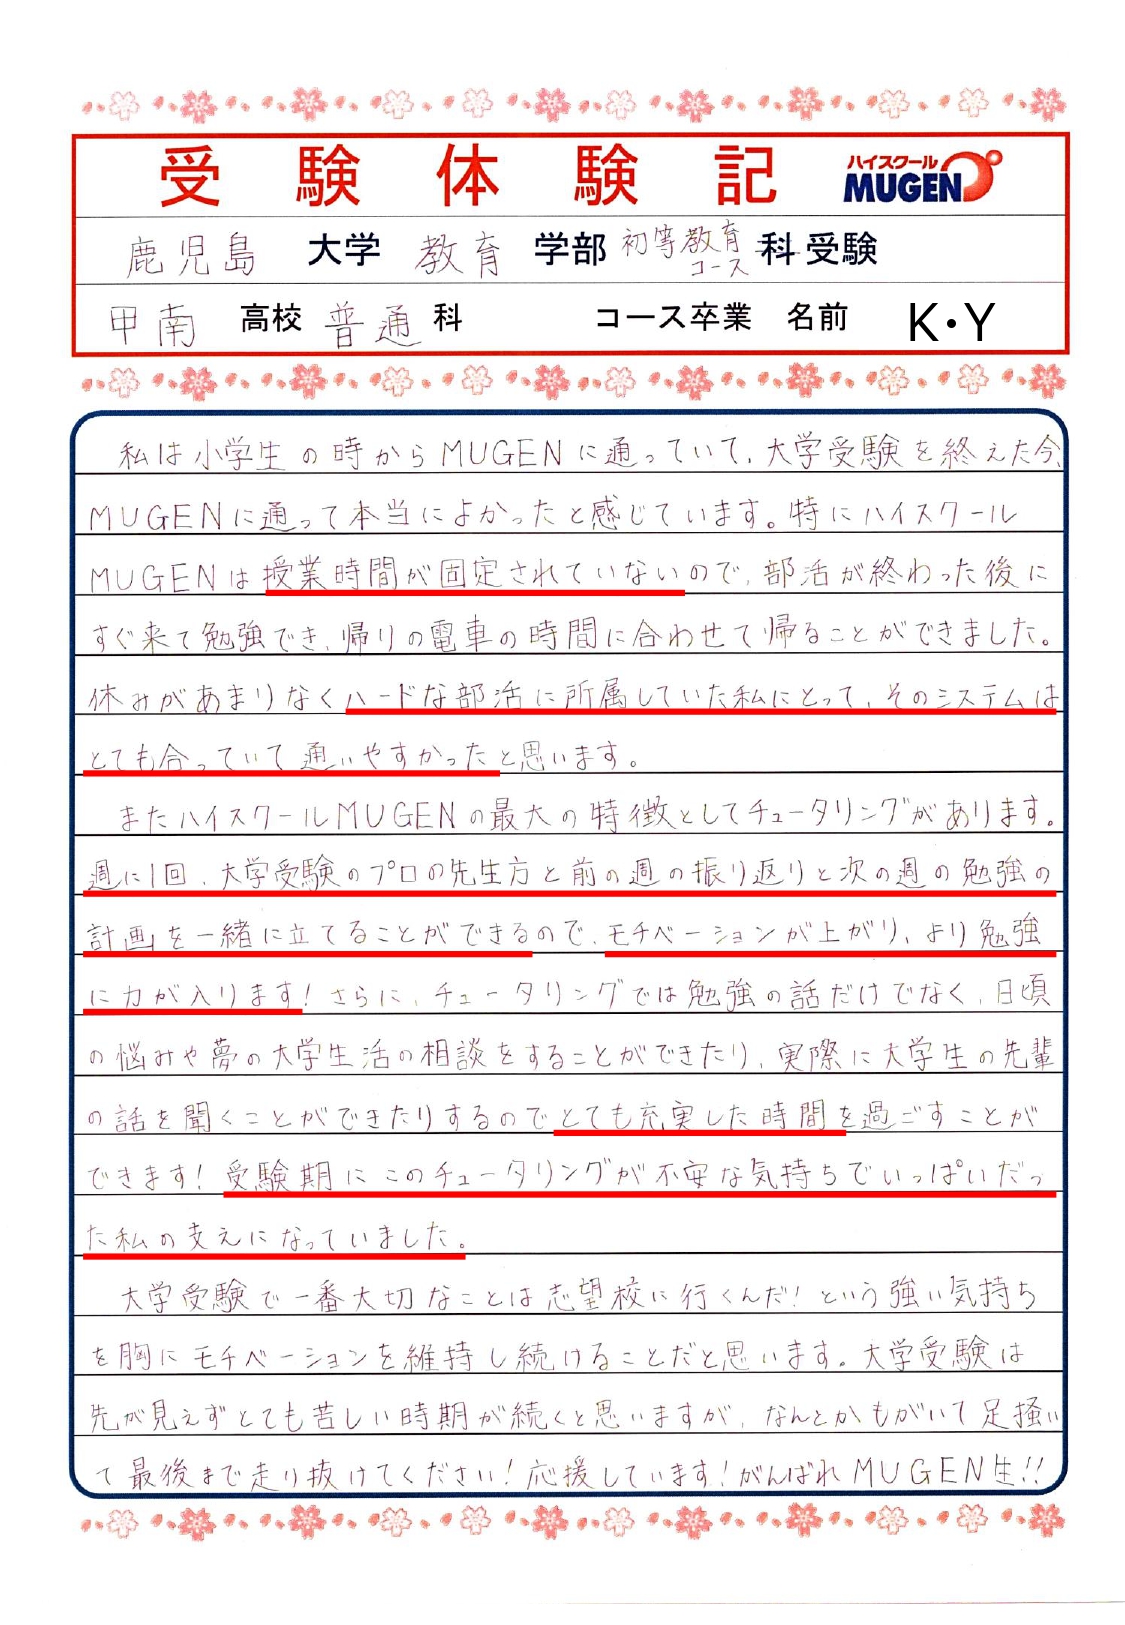 受験体験記 ハイスクール MUGEN
鹿児島 大学 教育 学部 初等教育コース 科 受験
甲南 高校 普通 科 コース卒業 名前 K・Y
私は小学生の時からMUGENに通っていて、大学受験を終えた今、
MUGENに通って本当によかったと感じています。特にハイスクール
MUGENは授業時間が固定されていないので、部活が終わった後に
すぐ来て勉強でき、帰りの電車の時間に合わせて帰ることができました。
休みがあまりなくハードな部活に所属していた私にとって、そのシステムは
とても合っていて通いやすかったと思います。
またハイスクールMUGENの最大の特徴としてチュータリングがあります。
週に1回、大学受験のプロの先生方と前の週の振り返りと次の週の勉強の
計画を一緒に立てることができるので、モチベーションが上がり、より勉強
に力が入ります!さらに、チュータリングでは勉強の話だけでなく、日頃
の悩みや夢の大学生活の相談をすることができたり、実際に大学生の先輩
の話を聞くことができたりするのでとても充実した時間を過ごすことが
できます!受験期にこのチュータリングが不安な気持ちでいっぱいだっ
た私の支えになっていました。
大学受験で一番大切なことは志望校に行くんだ!という強い気持ち
を胸にモチベーションを維持し続けることだと思います。大学受験は
先が見えずとても苦しい時期が続くと思いますが、なんとかもがいて足掻い
て最後まで走り抜けてください!応援しています!がんばれMUGEN生!!